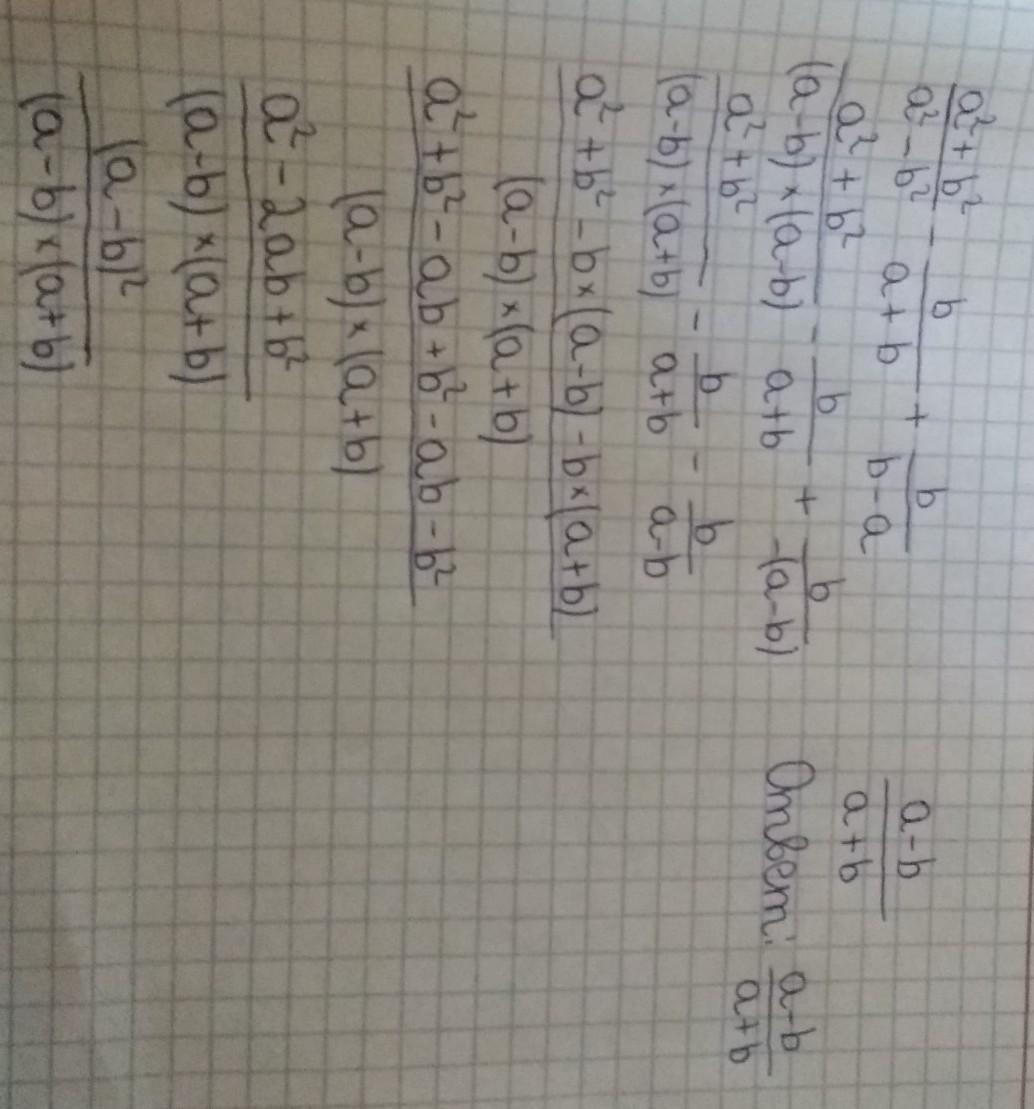 a²+b²/a²-b² - b/a+b + b/b-a
a²+b²/(a-b)×(a-b) - b/a+b + b/-(a-b)
a²+b²/(a-b)×(a+b) - b/a+b - b/a-b
a²+b²-b×(a-b)-b×(a+b)
(a-b)×(a+b)
a²+b²-ab+b²-ab-b²
(a-b)×(a+b)
a²-2ab+b²
(a-b)×(a+b)
(a-b)²
(a-b)×(a+b)
a-b
a+b
Ответ: a-b/a+b